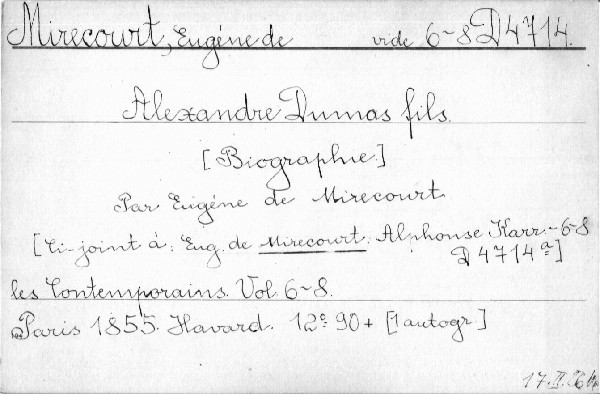 Mirecourt, Eugéne de vide 6-8 D 4714.
Alexandre Dumas fils.
[Biographie.]
Par Eugéne de Mirecourt.
[Ci-joint à: Eug. de Mirecourt: Alphonse Karr.- 6-8
D 4714 a=]
les Contemporains. Vol. 6-8.
Paris 1855. Havard. 12° 90 + [1 autogr.]
17. II.